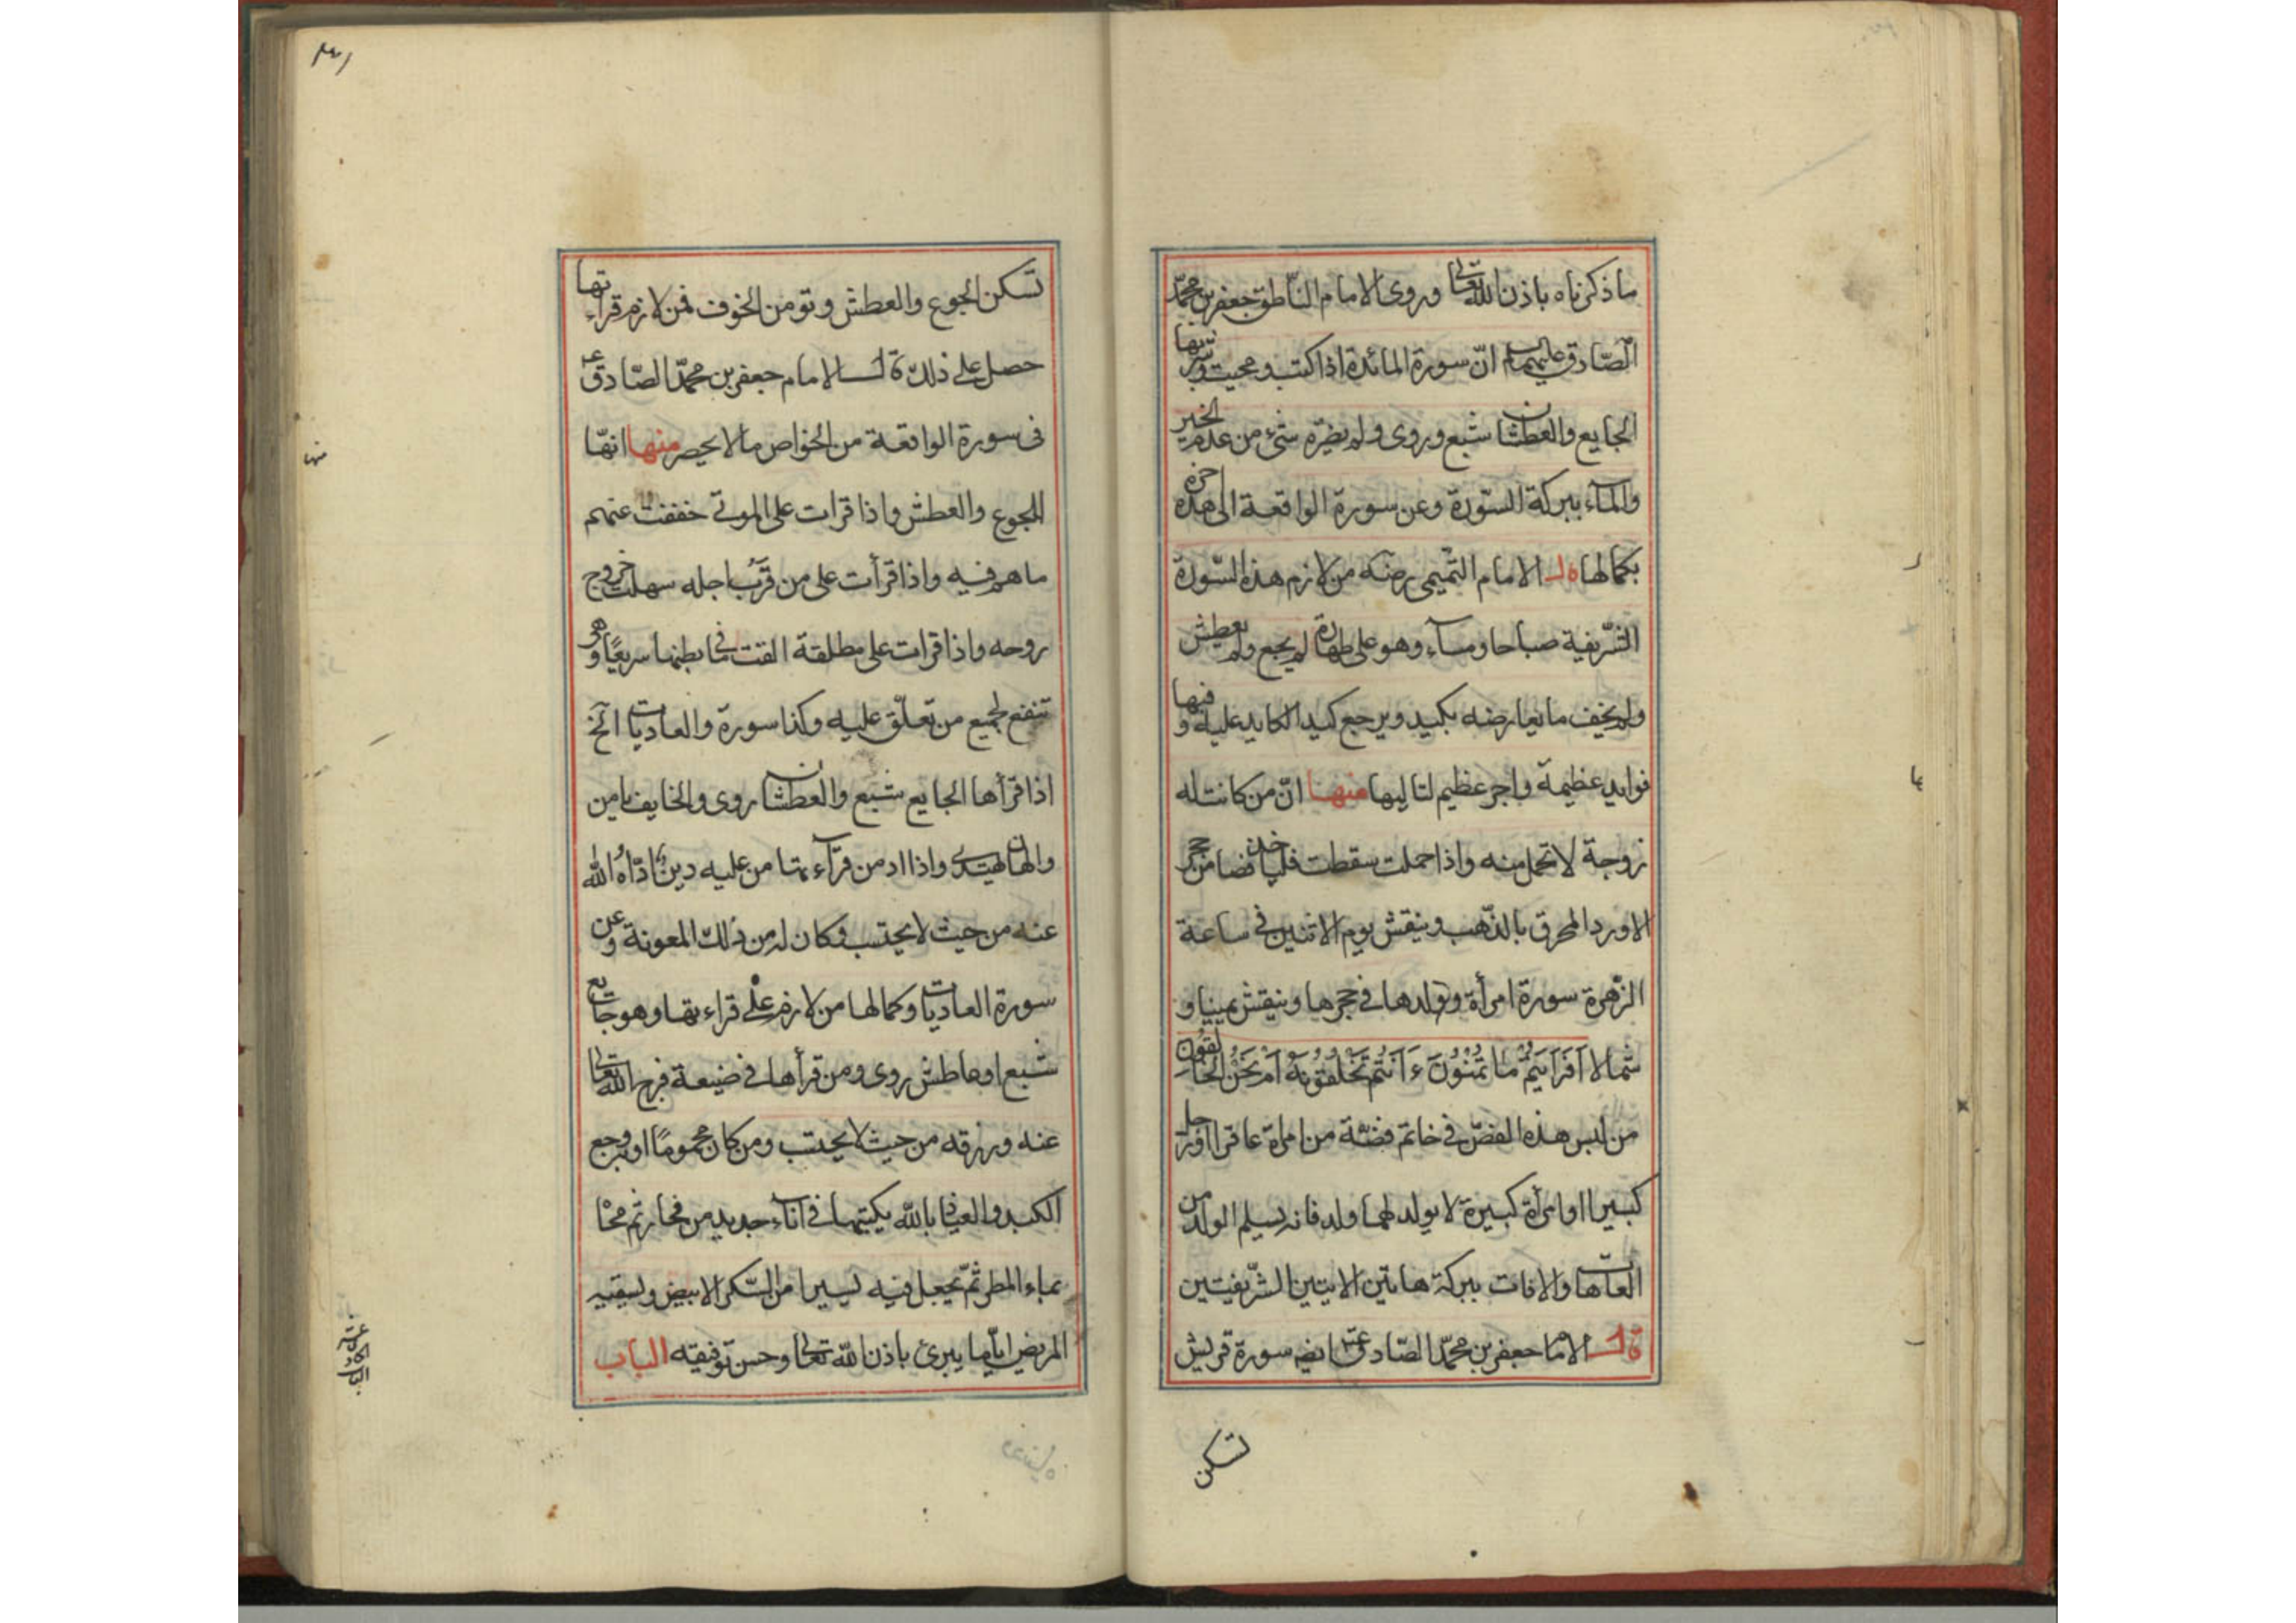 ما ذكرناه باذن الله تعالى وروى الامام الناطق جعفر بن محمّد
الصّادق عليهما السلام انّ سورة المائدة اذا كتبت ومحيت وشربها
الجايع والعطشان شبع وروى ولم يضرّه شئ من عدم الخبز
والماء ببركة السّورة وعن سورة الواقعة الى اخره هذه
بكمالها قال الامام التميمى رضه من لازم هذه السّورة
الشّريفة صباحا ومساء وهو على طهارة لم يجع ولم يعطش
ولم يخف ما يعارضه بكيد ويرجع كيد الكايد عليه وفيها
فوايد عظيمة واجر عظيم لتاليها منها انّ من كانت له
زوجة لا تحمل منه واذا حملت سقطت فلياخذ فصا من حجر
الاورد المحرق بالذّهب وينقش يوم الاثنين فى ساعة
الزّهرة سورة امرأة وولدها فى حجرها وينقش يمينا و
شمالا اَفَرَاَيتُم مَا تُمْنُوْنَ ءَاَنتُم تَخْلُقُونَهُ اَمْ نَحْنُ الخَالِقُونَ
من لبس هذه الفصّ فى خاتم فضّة من امراة عاقرا او رجل
كبيرا او امرأة كبيرة لا يولد لهما ولد فانه يسلم الولد من
العاهات والافات ببركة هاتين الايتين الشّريفيتين
قال الامام جعفر بن محمّد الصّادق عه ايضه سورة قريش
تسكن
٢٣١
تسكن الجوع والعطش وتومن الخوف فمن لازم قراءتها
حصل على ذلك قال الامام جعفر بن محمّد الصّادق عه
فى سورة الواقعة من الخواص ما لا يحصر منها انهّا
للجوع والعطش واذا قرات على الموتى خففت عنهم
ما هم فيه واذا قرأت على من قرُب اجله سهلت خروج
روحه واذا قرات على مطلقة القت ما فى بطنها سريعًا وهو
تنفع لجميع من تعلّق عليه وكذا سورة والعاديات الخ
اذا قرأها الجايع شبع والعطشان روى والخايف يامن
والهان يهتدى واذا ادمن قراءتها من عليه دين ادّاهُ الله
عنه من حيث لا يحتسب فكان له من ذلك المعونة وعن
سورة العاديات وكمالها من لازم على قراءتها وهو جايع
شبع او عاطش روى ومن قرأها فى ضيعة فرج الله تعالى
عنه ورزقه من حيث لا يحتسب ومن كان محمومًا او به وجع
الكبد والعياذ بالله يكتبها فى اناء جديد من فخار ثم محا
بماء المطر ثمّ يجعل فيه يسيرا من السّكر الابيض ويسقيه
المريض ايّاما يبرئ باذن الله تعالى وحسن توفيقه الباب
منها